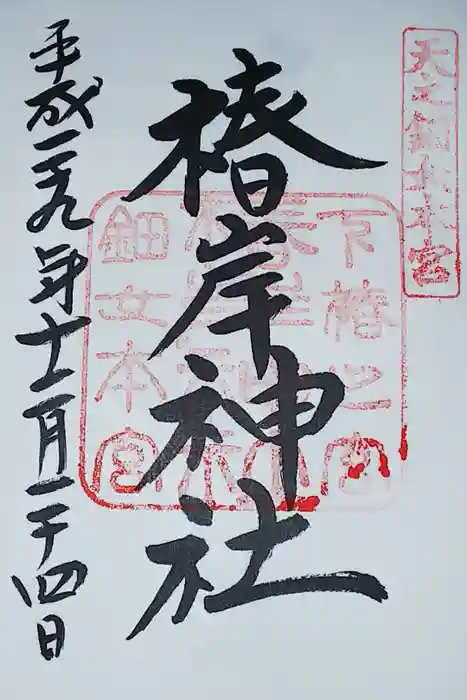 天之鈿女本宮
下椿之宮
椿岸神社
鈿女本宮
椿岸神社
平成二十九年十二月二十四日